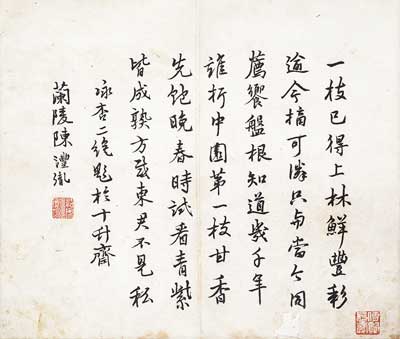 一枝已得上林鮮豐彩
逾今摘可憐只為當今因
薦饗盤根知道幾千年
誰折中園第一枝甘香
先飽晚春時試看青紫
皆成熟方感東君不見私
咏杏二絕題於十卉齋
蘭陵陳澧